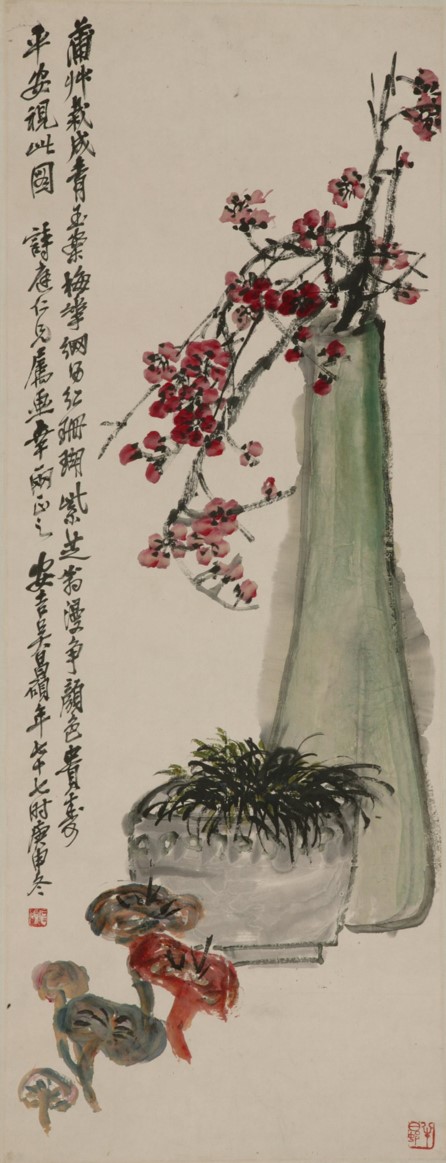 蒲艸栽成青玉案梅華網曰紅珊瑚紫芝翁漫爭顏色貴壽
平安視此圖 詩庭仁兄屬畫幸兩正之 安吉吳昌碩年七十七時庚申冬